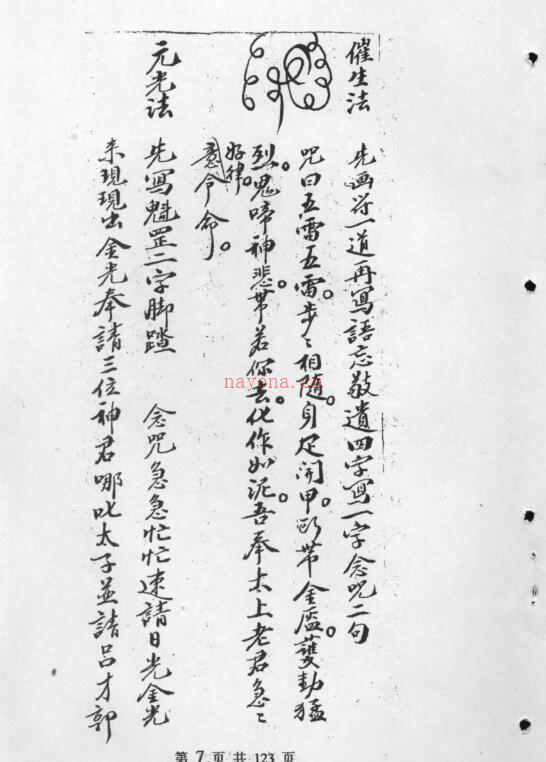 催生法
先画符一道再寫語忘敬遺四字寫一字念咒二句
咒曰五雷五雷步々相隨身足開甲頭带金盔護勅猛
烈鬼啼神悲带若你去化作如泥吾奉太上老君急々
好律
意令命
元光法
先寫魁罡二字脚踏 念咒急急忙忙速請日光金光
来現現出金光奉請三位神君哪叱太子並請吕才郭
nayona.cn
第 7 页 共 123 页